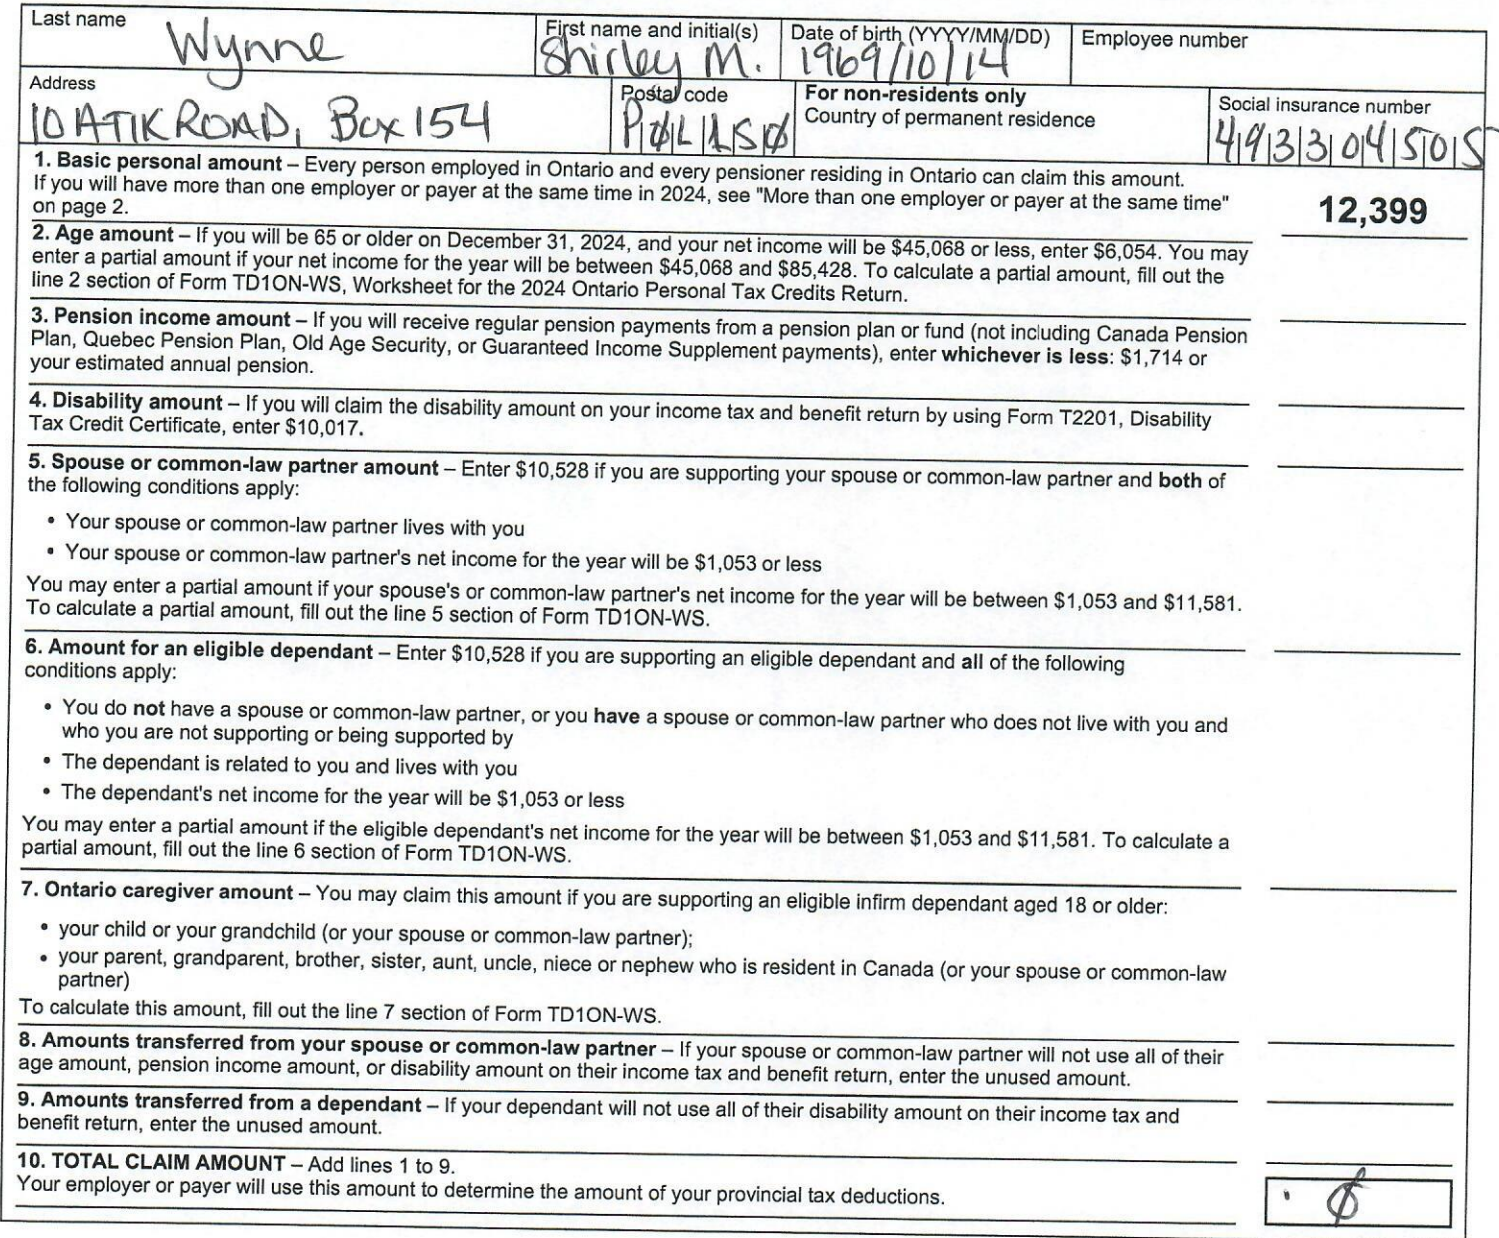 Last name
Wynne
First name and initial(s)
Shirley M.
Date of birth (YYYY/MM/DD)
1969/10/14
Employee number
Address
10 ATIK ROAD, Box 154
Postal code
P0L1S0
For non-residents only
Country of permanent residence
Social insurance number
493304505
1. Basic personal amount – Every person employed in Ontario and every pensioner residing in Ontario can claim this amount.
If you will have more than one employer or payer at the same time in 2024, see "More than one employer or payer at the same time"
on page 2.
12,399
2. Age amount – If you will be 65 or older on December 31, 2024, and your net income will be $45,068 or less, enter $6,054. You may
enter a partial amount if your net income for the year will be between $45,068 and $85,428. To calculate a partial amount, fill out the
line 2 section of Form TD1ON-WS, Worksheet for the 2024 Ontario Personal Tax Credits Return.
3. Pension income amount – If you will receive regular pension payments from a pension plan or fund (not including Canada Pension
Plan, Quebec Pension Plan, Old Age Security, or Guaranteed Income Supplement payments), enter whichever is less: $1,714 or
your estimated annual pension.
4. Disability amount – If you will claim the disability amount on your income tax and benefit return by using Form T2201, Disability
Tax Credit Certificate, enter $10,017.
5. Spouse or common-law partner amount – Enter $10,528 if you are supporting your spouse or common-law partner and both of
the following conditions apply:
• Your spouse or common-law partner lives with you
• Your spouse or common-law partner's net income for the year will be $1,053 or less
You may enter a partial amount if your spouse's or common-law partner's net income for the year will be between $1,053 and $11,581.
To calculate a partial amount, fill out the line 5 section of Form TD1ON-WS.
6. Amount for an eligible dependant – Enter $10,528 if you are supporting an eligible dependant and all of the following
conditions apply:
• You do not have a spouse or common-law partner, or you have a spouse or common-law partner who does not live with you and
who you are not supporting or being supported by
• The dependant is related to you and lives with you
• The dependant's net income for the year will be $1,053 or less
You may enter a partial amount if the eligible dependant's net income for the year will be between $1,053 and $11,581. To calculate a
partial amount, fill out the line 6 section of Form TD1ON-WS.
7. Ontario caregiver amount – You may claim this amount if you are supporting an eligible infirm dependant aged 18 or older:
• your child or your grandchild (or your spouse or common-law partner);
• your parent, grandparent, brother, sister, aunt, uncle, niece or nephew who is resident in Canada (or your spouse or common-law
partner)
To calculate this amount, fill out the line 7 section of Form TD1ON-WS.
8. Amounts transferred from your spouse or common-law partner – If your spouse or common-law partner will not use all of their
age amount, pension income amount, or disability amount on their income tax and benefit return, enter the unused amount.
9. Amounts transferred from a dependant – If your dependant will not use all of their disability amount on their income tax and
benefit return, enter the unused amount.
10. TOTAL CLAIM AMOUNT – Add lines 1 to 9.
Your employer or payer will use this amount to determine the amount of your provincial tax deductions.
0